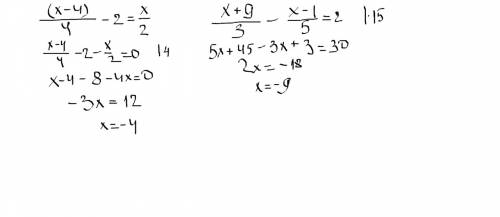 (x-4)/4 - 2 = x/2
x-4/4 - 2 - x/2 = 0 |4
x-4-8-4x=0
-3x = 12
x=-4
x+9/3 - x-1/5 = 2 |·15
5x+45-3x+3=30
2x=-18
x=-9